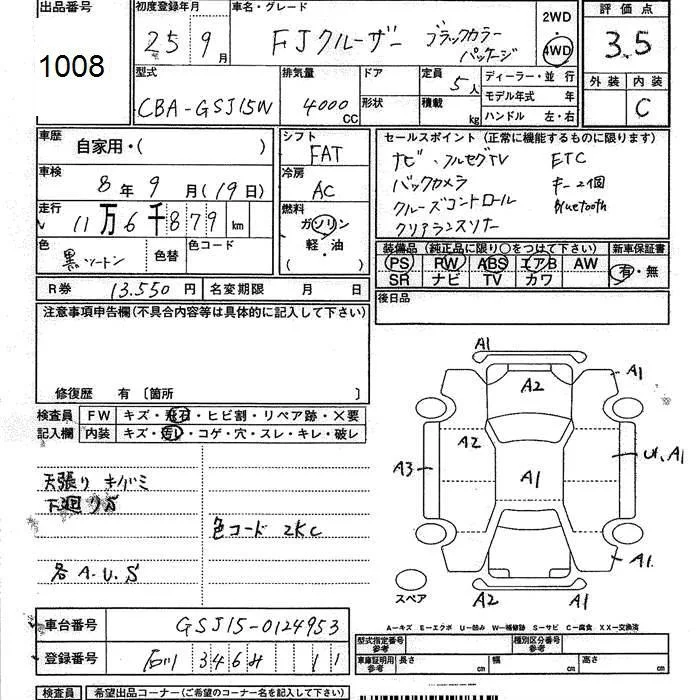 出品番号
1008
初度登録年月
25 9月
車名・グレード
FJクルーザー ブラックカラー
パッケージ
2WD
4WD
評価点
3.5
外装 内装
C
型式
CBA-GSJ15W
排気量
4000
CC
ドア
形状
定員
5人
積載
kg
ディーラー・並行
モデル年式 年
ハンドル 左・右
車歴
自家用・( )
車検
8年 9月(19日)
走行
11万6千879 km
色
黒ツートン
色替
色コード
シフト
FAT
冷房
AC
燃料
ガソリン
軽・油
( )
セールスポイント (正常に機能するものに限ります)
ナビ・フルセグTV ETC
バックカメラ キー2個
クルーズコントロール Bluetooth
クリアランスソナー
装備品 (純正品に限り○をつけて下さい)
PS PW ABS エアB AW
SR ナビ TV カワ
新車保証書
有・無
R券 13.550円 名変期限 月 日
後日品
注意事項申告欄(不具合内容等は具体的に記入して下さい)
修復歴 有 〔箇所 〕
検査員
記入欄
FW キズ・飛石・ヒビ割・リペア跡・×要
内装 キズ・汚レ・コゲ・穴・スレ・キレ・破レ
天張り キバミ
下廻りS
色コード 2KC
各A.U.S
A1
A1
A2
A2
A3
A1
U1、A1
A1
A2
A1
スペア
A-キズ E-エクボ U-凹み W-補修跡 S-サビ C-腐食 XX-交換済
車台番号 GSJ15-0124953
登録番号 石川 346 11
型式指定番号
参考
種別区分番号
参考
車庫証明用
参考
長さ cm 幅 cm 高さ cm
検査員 希望出品コーナー(ご希望のコーナー名を記入下さい)